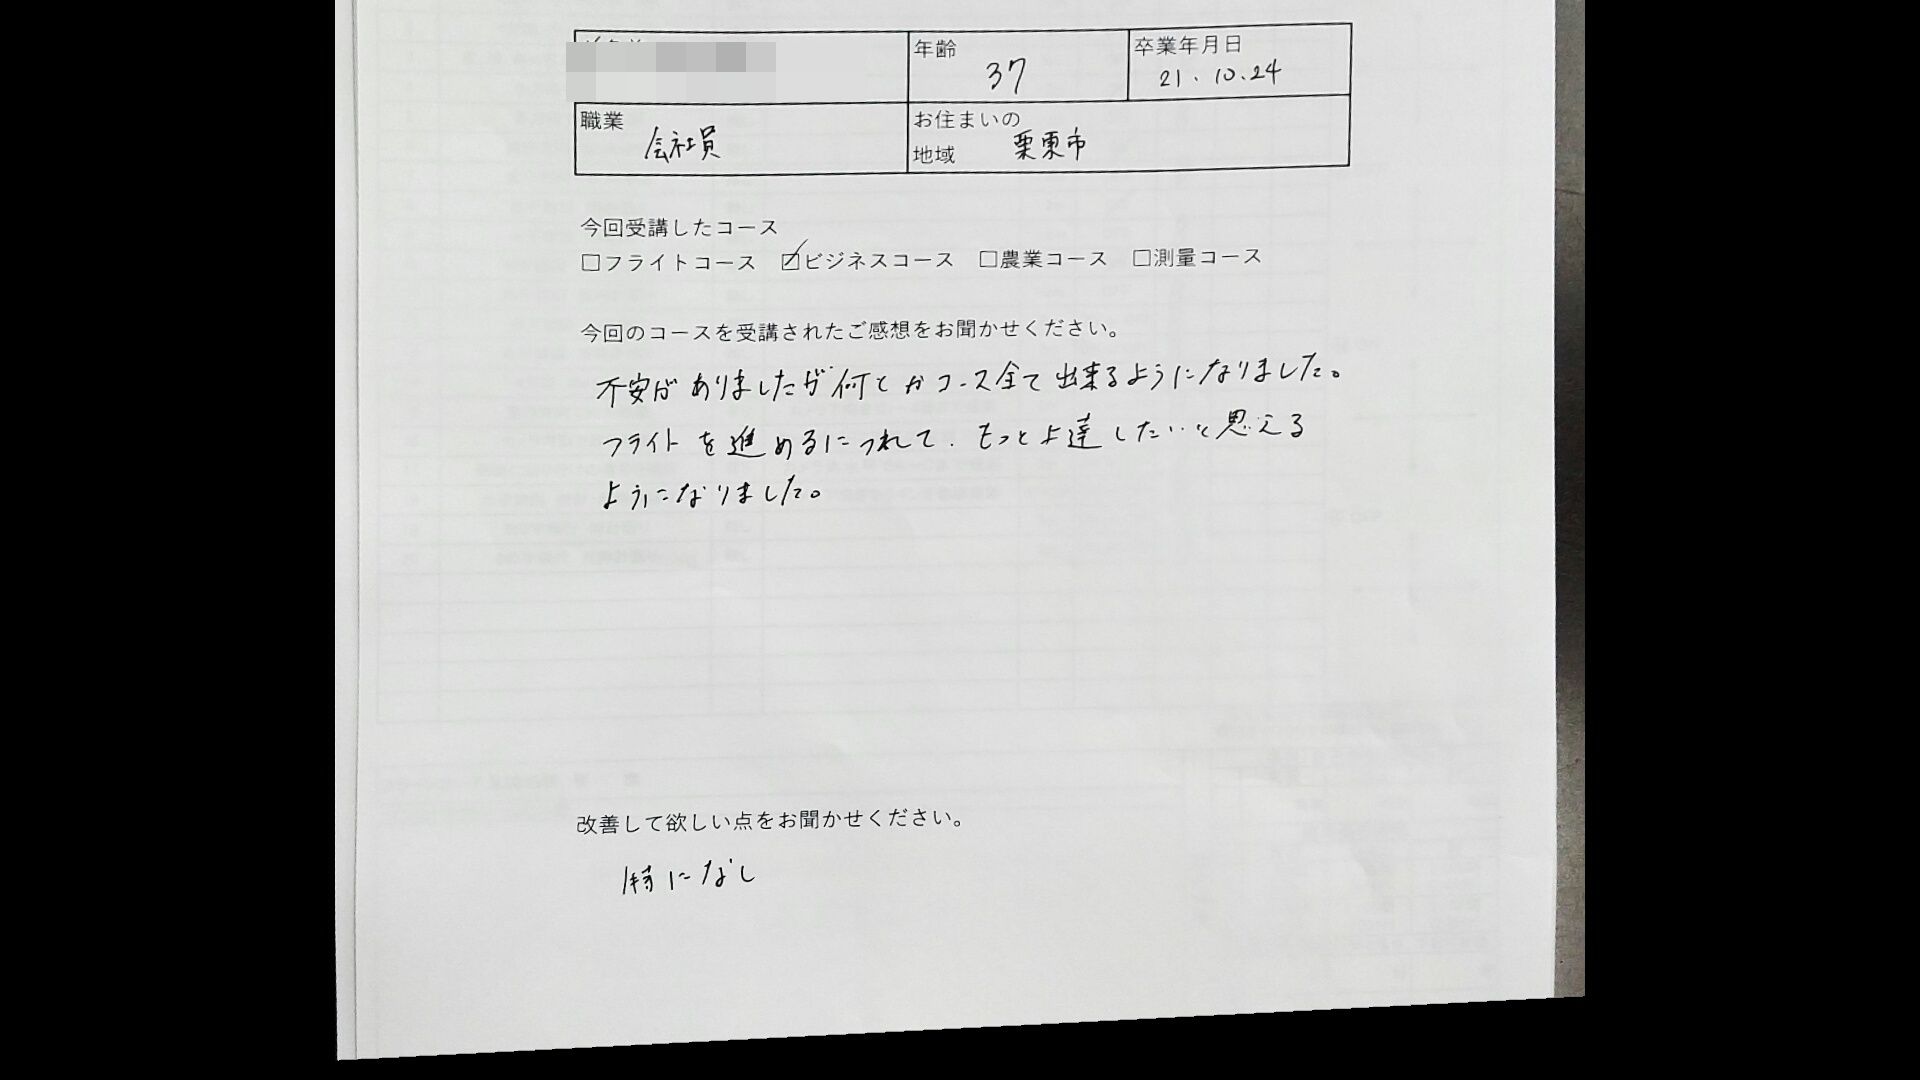 年齢 37
卒業年月日 21.10.24
職業 会社員
お住まいの
地域 栗東市
今回受講したコース
□フライトコース ☑ビジネスコース □農業コース □測量コース
今回のコースを受講されたご感想をお聞かせください。
不安がありましたが何とかコース全て出来るようになりました。
フライトを進めるにつれて、もっと上達したいと思える
ようになりました。
改善して欲しい点をお聞かせください。
特になし